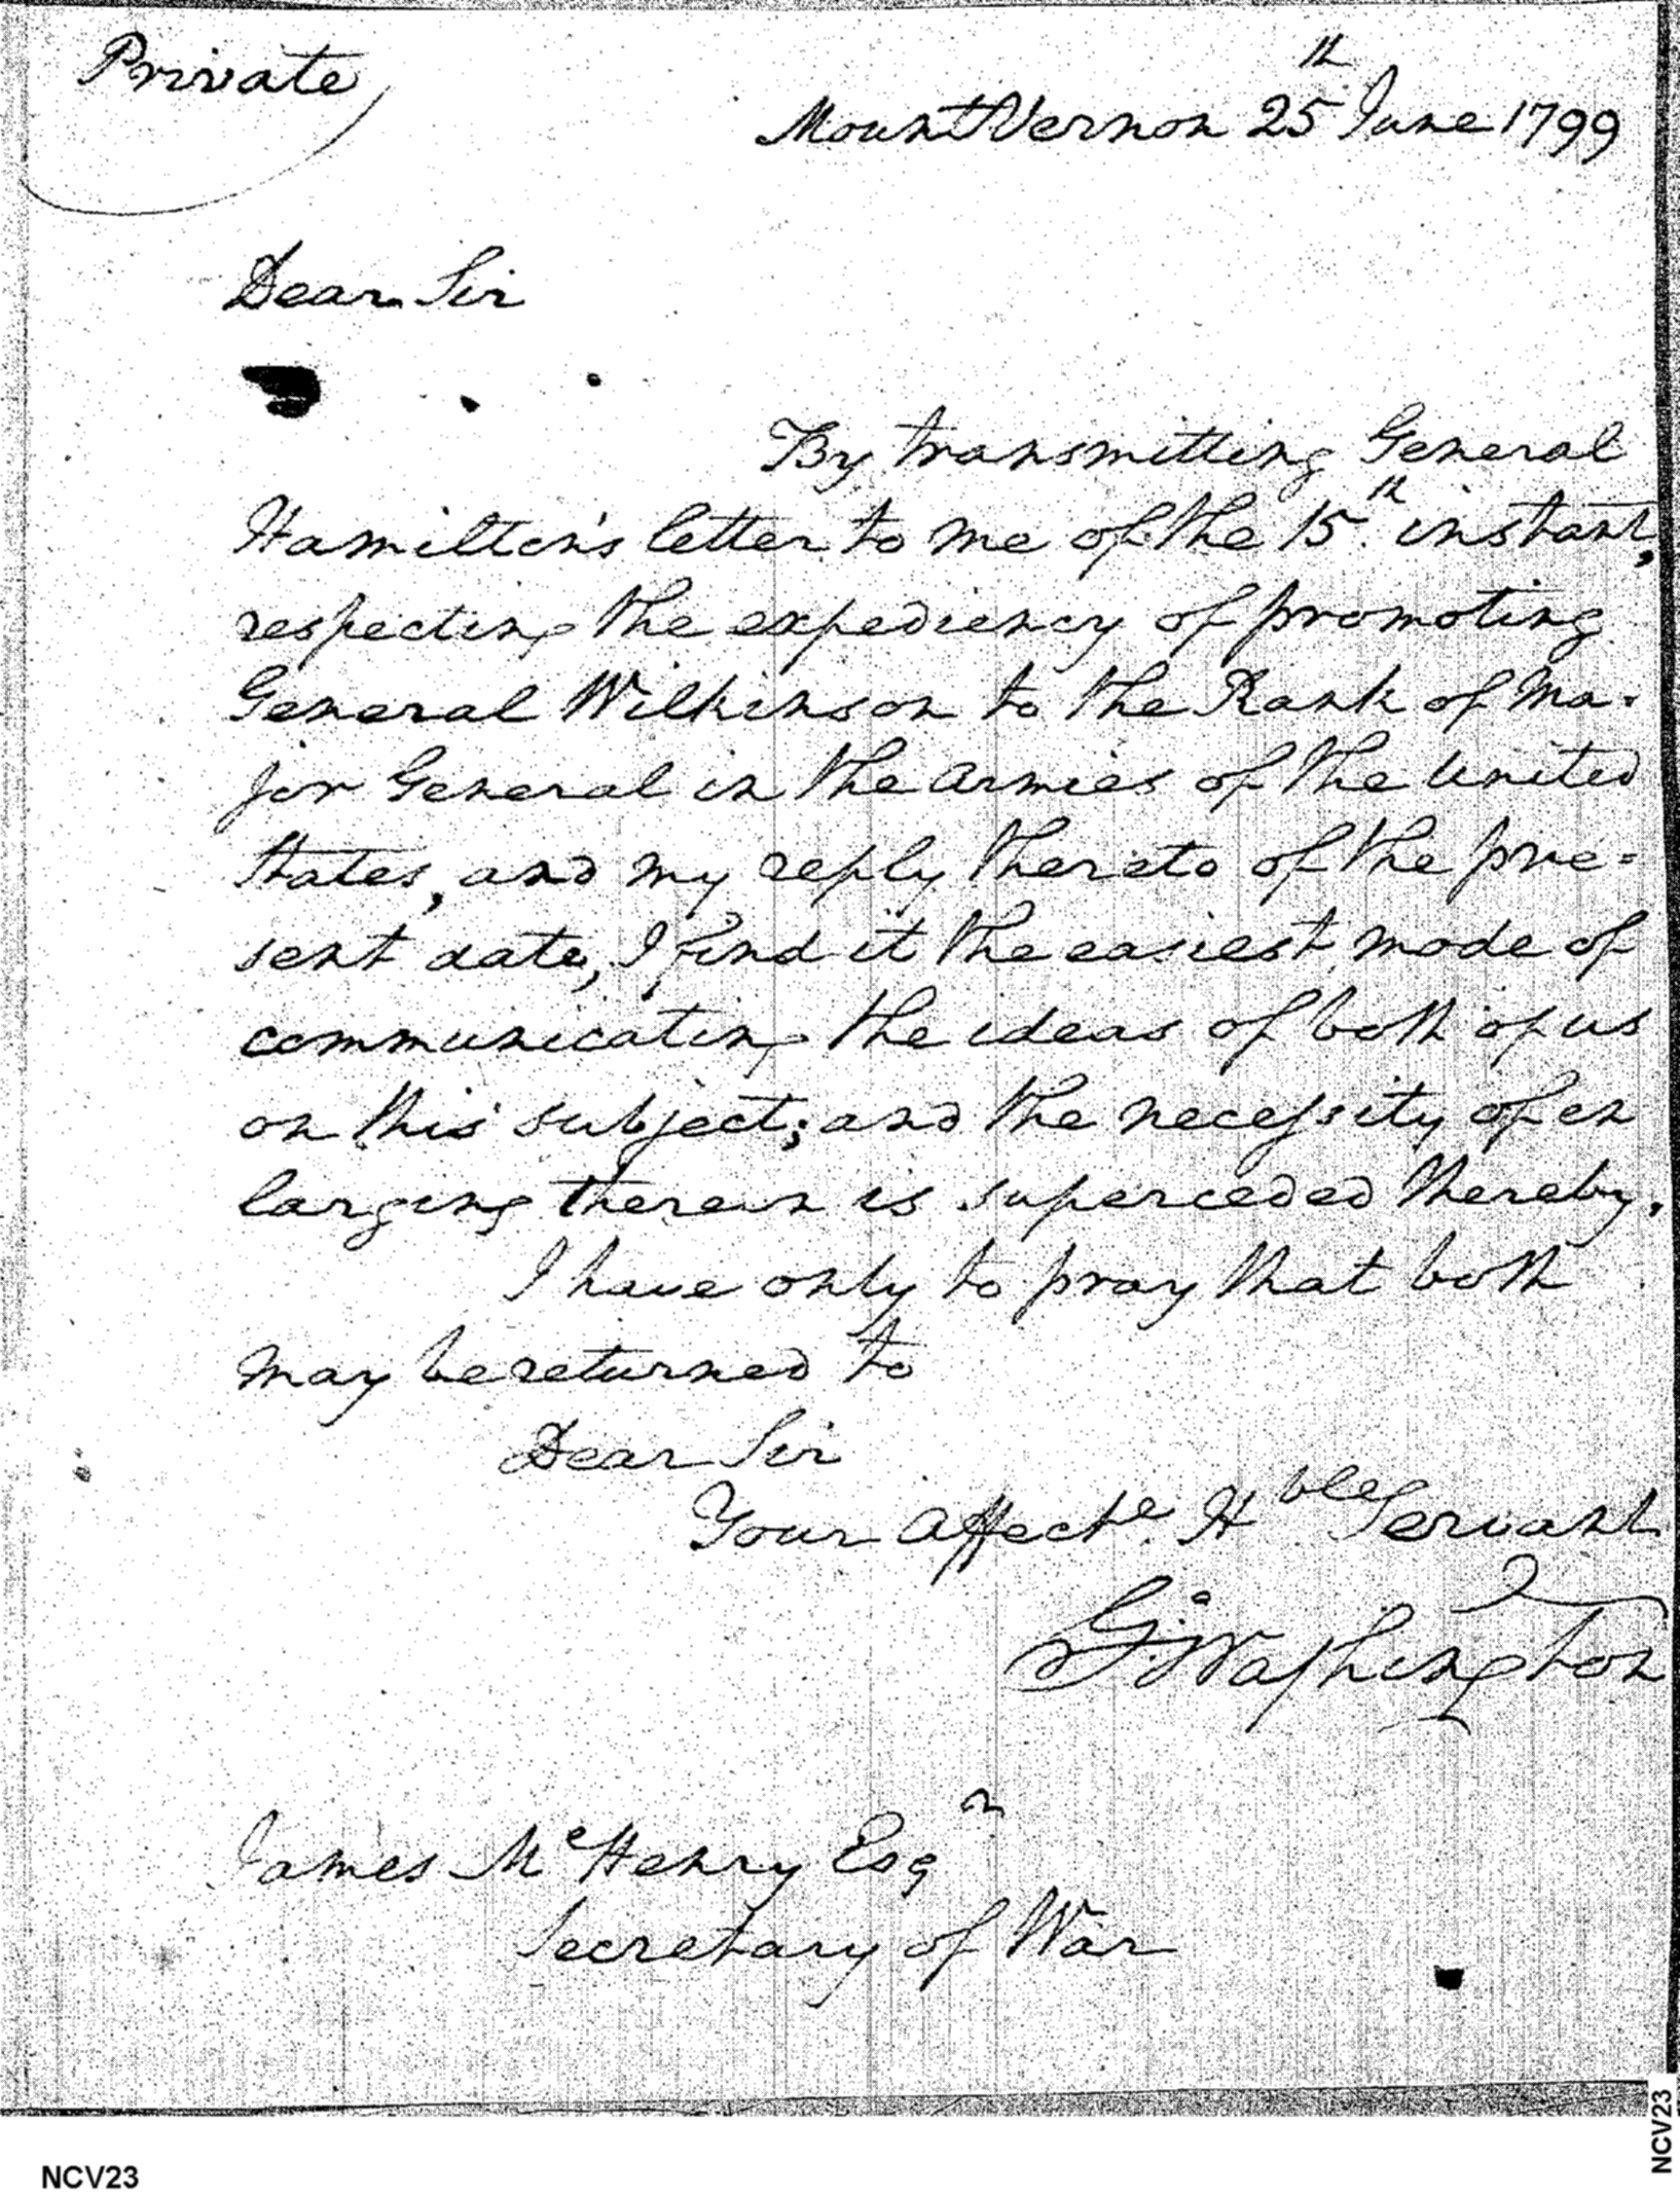 Private
Mount Vernon 25th June 1799
Dear Sir
By transmitting General
Hamilton's letter to me of the 15th instant,
respecting the expediency of promoting
General Wilkinson to the Rank of Ma-
jor General in the Armies of the United
States, and my reply thereto of the pre=
sent date, I find it the easiest mode of
communicating the ideas of both of us
on this subject; and the necessity of en
larging therein is superceded thereby.
I have only to pray that both
may be returned to
Dear Sir
Your Affecte. Hble Servant
Go: Washington
James McHenry Esqr
Secretary of War
NCV23
NCV23